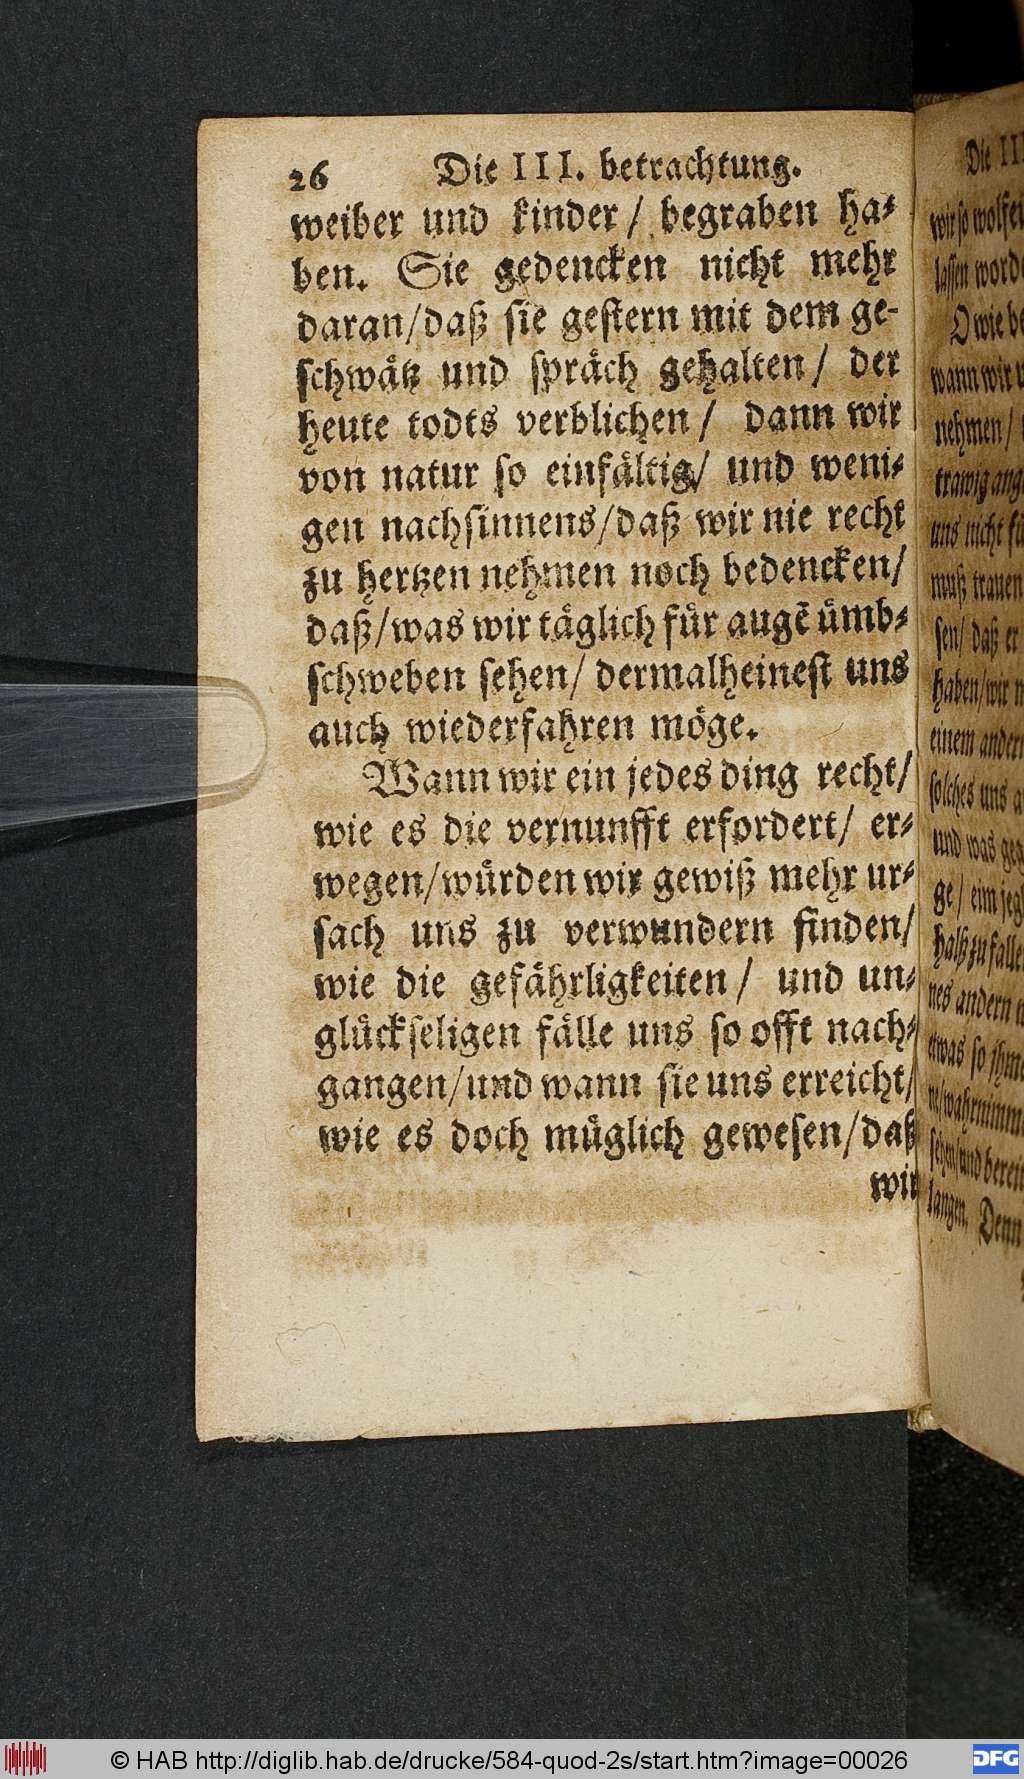 26 Die III. betrachtung.
weiber und kinder / begraben ha⸗
ben. Sie gedencken nicht mehr
daran/daß sie gestern mit dem ge-
schwätz und spräch gehalten / der
heute todts verblichen / dann wir
von natur so einfältig/ und weni⸗
gen nachsinnens/daß wir nie recht
zu hertzen nehmen noch bedencken/
daß/was wir täglich für augẽ ümb⸗
schweben sehen/ dermalheinest uns
auch wiederfahren möge.
Wann wir ein jedes ding recht/
wie es die vernunfft erfordert/ er⸗
wegen/würden wir gewiß mehr ur⸗
sach uns zu verwundern finden/
wie die gefährligkeiten / und un⸗
glückseligen fälle uns so offt nach⸗
gangen/und wann sie uns erreicht/
wie es doch müglich gewesen/daß
wir
Die III
wir so
lassen
O wie
wann wir
nehmen/
uns nicht
muß trauen
sen/ daß er
haben/wir
einem
solches uns
und was
ge/
zu
nes andern
etwas so
langen. Denn
© HAB http://diglib.hab.de/drucke/584-quod-2s/start.htm?image=00026
DFG